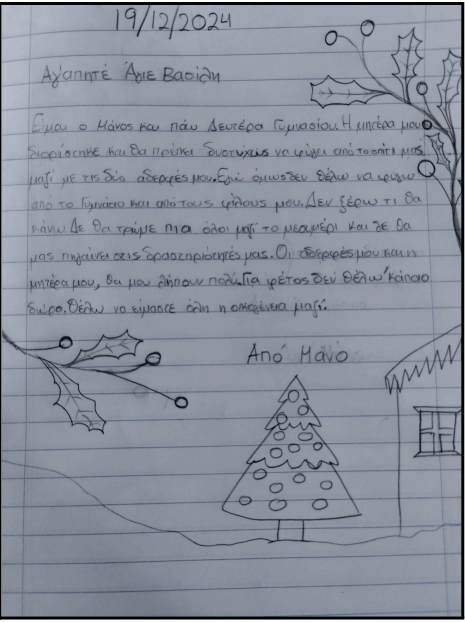 19/12/2024
Αγαπητέ Άγιε Βασίλη
Είμαι ο Μάνος και πάω Δευτέρα Γυμνασίου. Η μητέρα μου
διορίστηκε και θα πρέπει δυστυχώς να φύγει από το σπίτι μας
μαζί με τις δύο αδερφές μου. Εγώ όμως δεν θέλω να φύγω
από το Γυμνάσιο και από τους φίλους μου. Δεν ξέρω τι θα
κάνω. Δε θα τρώμε πια όλοι μαζί το μεσημέρι και δε θα
μας πηγαίνει στις δραστηριότητές μας. Οι αδερφές μου και η
μητέρα μου, θα μου λήπουν πολύ. Για φέτος δεν θέλω κάποιο
δώρο. Θέλω να είμαστε όλη η οικογένεια μαζί.
Από Μάνο